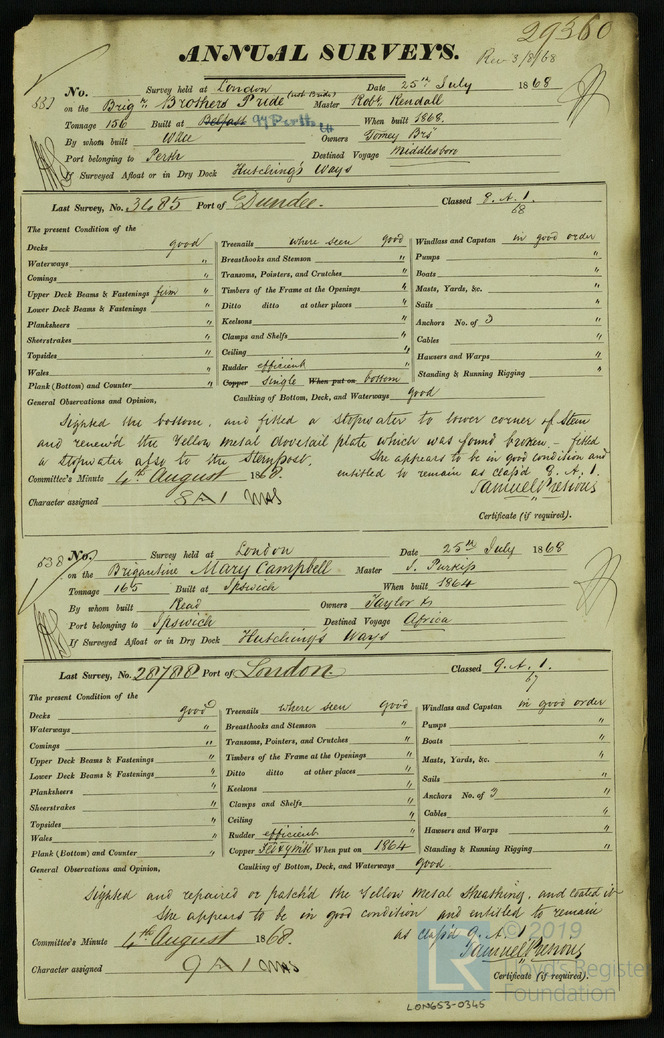 29360
ANNUAL SURVEYS.
Rec 3/8/68
537 No. Survey held at London Date 25th July 1868
on the Brign Brothers Pride (not Bride) Master Robt. Kendall
Tonnage 156 Built at Belfast Perth When built 1868.
By whom built Owners Brs
Port belonging to Perth Destined Voyage Middlesboro
If Surveyed Afloat or in Dry Dock Hutching's Ways
Last Survey, No. 3485 Port of Dundee. Classed 9. A. 1.
68
The present Condition of the
Decks good Treenails where seen good Windlass and Capstan in good order
Waterways " Breasthooks and Stemson " Pumps "
Comings " Transoms, Pointers, and Crutches " Boats "
Upper Deck Beams & Fastenings firm " Timbers of the Frame at the Openings " Masts, Yards, &c. "
Lower Deck Beams & Fastenings " Ditto ditto at other places " Sails "
Planksheers " Keelsons " Anchors No. of 3 "
Sheerstrakes " Clamps and Shelfs " Cables "
Topsides " Ceiling " Hawsers and Warps "
Wales " Rudder efficient Standing & Running Rigging "
Plank (Bottom) and Counter " Copper Single When put on bottom
General Observations and Opinion, Caulking of Bottom, Deck, and Waterways good
Sighted the bottom, and fitted a stopwater to lower corner of Stem
and renew'd the Yellow metal dovetail plate which was found broken. – fitted
a stopwater also to the Sternpost. She appears to be in good condition and
Committee's Minute 4th August 1868. entitled to remain as class'd 9. A. 1.
Samuel Pretious
Character assigned 8 A 1
Certificate (if required).
538 No. Survey held at London Date 25th July 1868
on the Brigantine Mary Campbell Master J. Purkiss
Tonnage 165 Built at Ipswich When built 1864
By whom built Read Owners Taylor
Port belonging to Ipswich Destined Voyage Africa
If Surveyed Afloat or in Dry Dock Hutching's Ways
Last Survey, No. 28788 Port of London. Classed 9. A. 1.
67
The present Condition of the
Decks good Treenails where seen good Windlass and Capstan in good order
Waterways " Breasthooks and Stemson " Pumps "
Comings " Transoms, Pointers, and Crutches " Boats "
Upper Deck Beams & Fastenings " Timbers of the Frame at the Openings " Masts, Yards, &c. "
Lower Deck Beams & Fastenings " Ditto ditto at other places " Sails "
Planksheers " Keelsons " Anchors No. of 3 "
Sheerstrakes " Clamps and Shelfs " Cables "
Topsides " Ceiling " Hawsers and Warps "
Wales " Rudder efficient Standing & Running Rigging "
Plank (Bottom) and Counter " Copper When put on 1864
General Observations and Opinion, Caulking of Bottom, Deck, and Waterways good
Sighted and repaired or patch'd the Yellow Metal Sheathing, and coated it
She appears to be in good condition and entitled to remain
Committee's Minute 4th August 1868. as class'd 9. A. 1
Samuel Pretious
Character assigned 9 A 1
Certificate (if required).
© 2019
LR Lloyd's Register
Foundation
LON653-0345